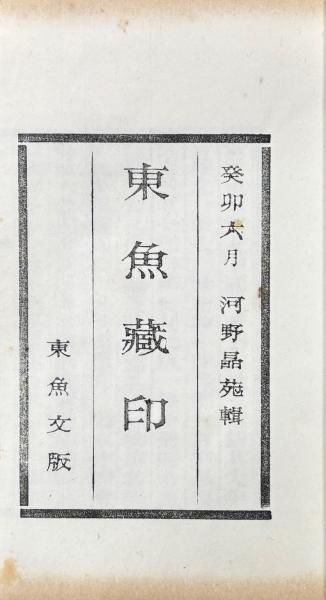 癸卯六月　河野晶苑輯
東魚藏印
東魚文版